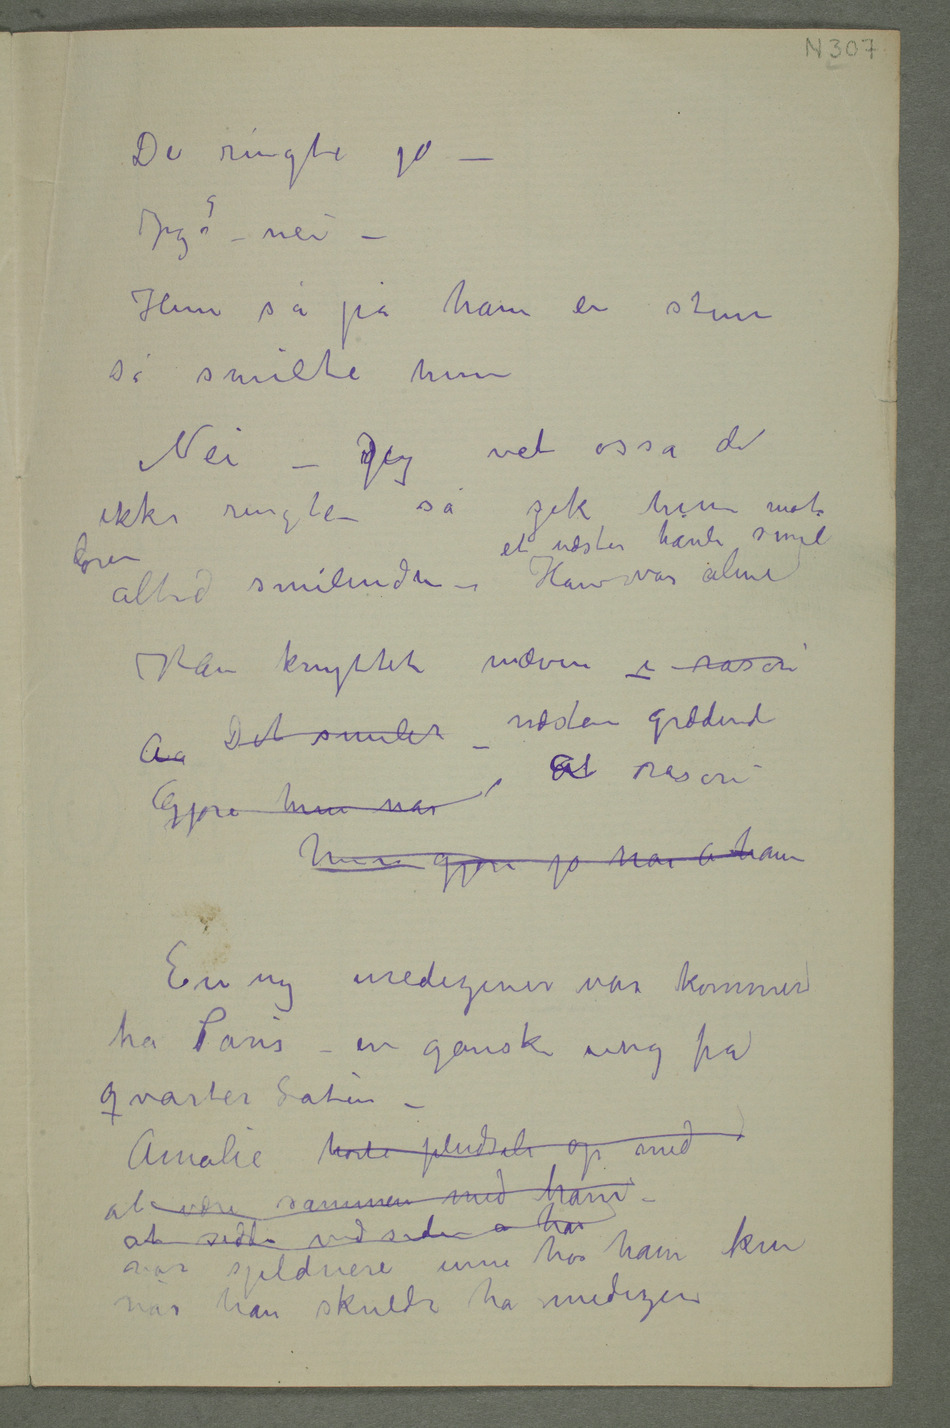 N 307
De ringte jo –
Jeg å – nei –
Hun så på ham en stun
så smilte hun
Nei – Jeg vet osså de
ikke ringte – så gik hun mot
døren
et næsten hånli smil
altid smilende – Han var alene
Han knyttet næven i raseri
Aa Det smiler – næsten grædend
At raseri
Gjøre hun nar
hun gjør jo nar a ham
En ny medeziner var kommen
fra Paris – en ganske ung fra
qvarter Latin –
Amalie holte pludseli op med
at være sammen med ham –
at sidde ved siden a ham
var sjeldnere inne hos ham kun
når han skulde ha medezin